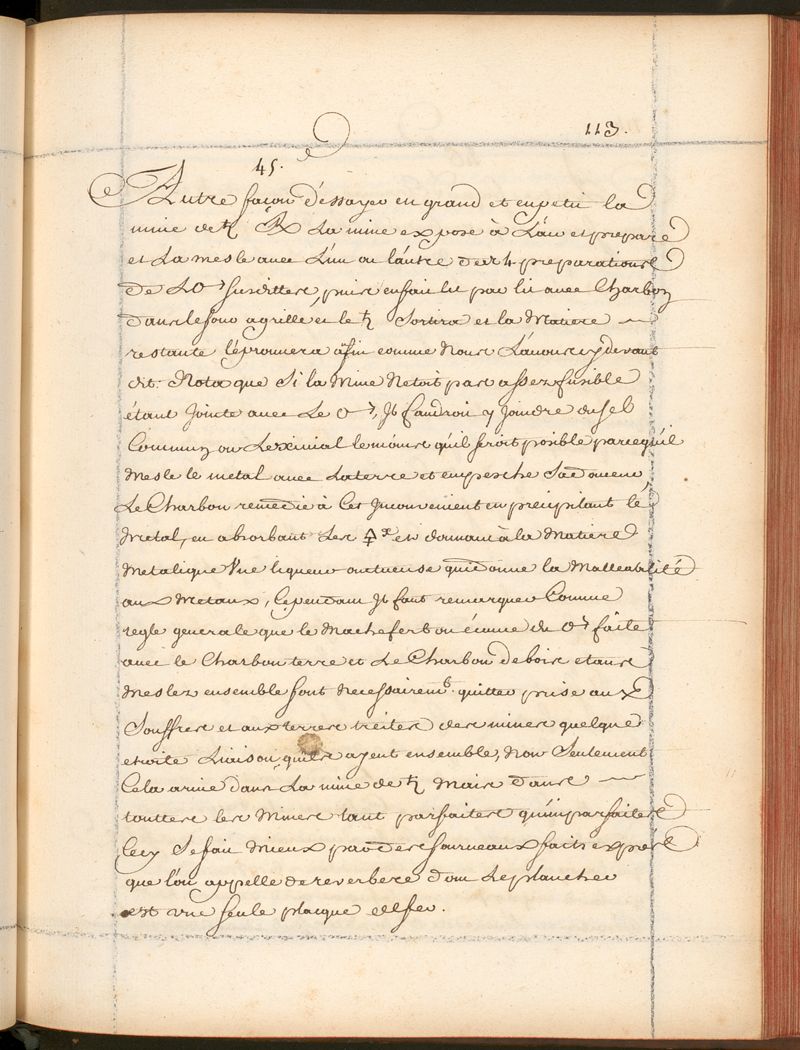 113.
45.
Autre façon d'éssayer en grand et en petit la
mine de ♄ ℞ La mine expose à L'air et prepare
et La mesle avec L'un ou l'autre des 4 preparations
De L♂ susdittes, puis en fait lit par lit avec Charbon
dans le four a grille et le ♄ Sortira et la Matiere
restante l'éprouvera afin comme Nous L'avons cy devant
dit. Nota que Si la Mine Netoit pas assez fusible
étant Jointe avec Le ♂, Jl faudroit y Joindre du sel
Commun ou Lexivial le moins qu'il seroit posible parcequ'il
mesle le metal avec La terre et empesche Sa douceur,
Le Charbon remedie à Cet Jnconvenient en precipitant le
Metal, en absorbant Les 🜍 et donnant à la Matiere
Metalique Vne liqueur onctueuse qui donne la Malleabilité
aux Metaux, Cependant Jl faut remarquer Comme
regle generale que le Machefer ou écume de ♂ faite
avec le Charbon terre et Le Charbon de bois etans
meslez ensemble font necessairemt. quitter prise aux
Souffres et aux terres treites des mines quelque
etroite Liaison qu'ils ayent ensemble, Non Seulement
Cela arive dans La mine de ♄ Mais dans
touttes les Mines tant parfaites qu'imparfaites
Cecy Se fait Mieux par des fourneaux faits exprés
que l'on appelle de reverbere dont Le plancher
est vne seule placque de fer.